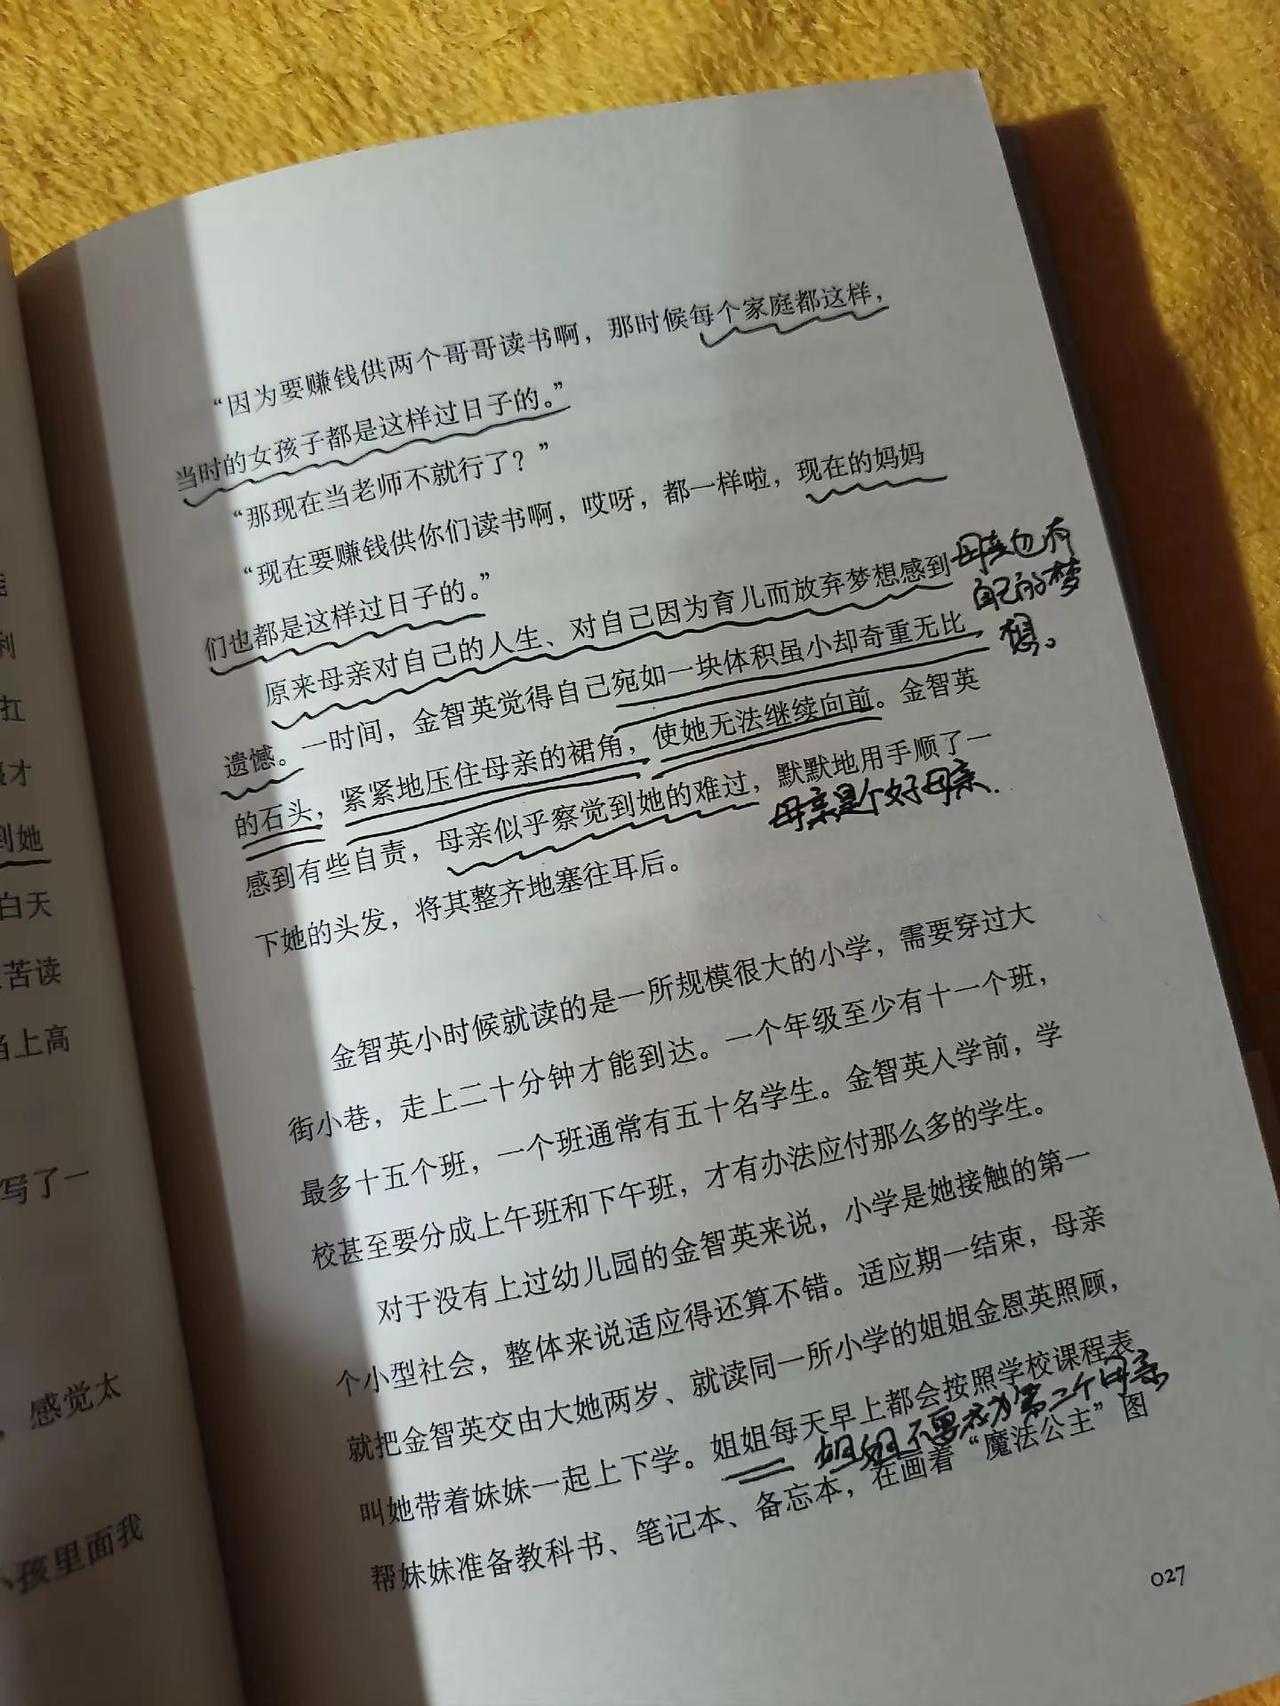 “因为要赚钱供两个哥哥读书啊，那时候每个家庭都这样，
当时的女孩子都是这样过日子的。”
“那现在当老师不就行了？”
“现在要赚钱供你们读书啊，哎呀，都一样啦，现在的妈妈
们也都是这样过日子的。”
原来母亲对自己的人生、对自己因为育儿而放弃梦想感到
母亲也有
自己的梦
想。
遗憾。一时间，金智英觉得自己宛如一块体积虽小却奇重无比
的石头，紧紧地压住母亲的裙角，使她无法继续向前。金智英
感到有些自责，母亲似乎察觉到她的难过，默默地用手顺了一
母亲是个好母亲.
下她的头发，将其整齐地塞往耳后。
金智英小时候就读的是一所规模很大的小学，需要穿过大
街小巷，走上二十分钟才能到达。一个年级至少有十一个班，
最多十五个班，一个班通常有五十名学生。金智英入学前，学
校甚至要分成上午班和下午班，才有办法应付那么多的学生。
对于没有上过幼儿园的金智英来说，小学是她接触的第一
个小型社会，整体来说适应得还算不错。适应期一结束，母亲
就把金智英交由大她两岁、就读同一所小学的姐姐金恩英照顾，
叫她带着妹妹一起上下学。姐姐每天早上都会按照学校课程表
姐姐不要成为第二个母亲
帮妹妹准备教科书、笔记本、备忘本，在画着“魔法公主”图
027
利
扛
才
到她
白天
苦读
当上高
写了一
，感觉太
小孩里面我